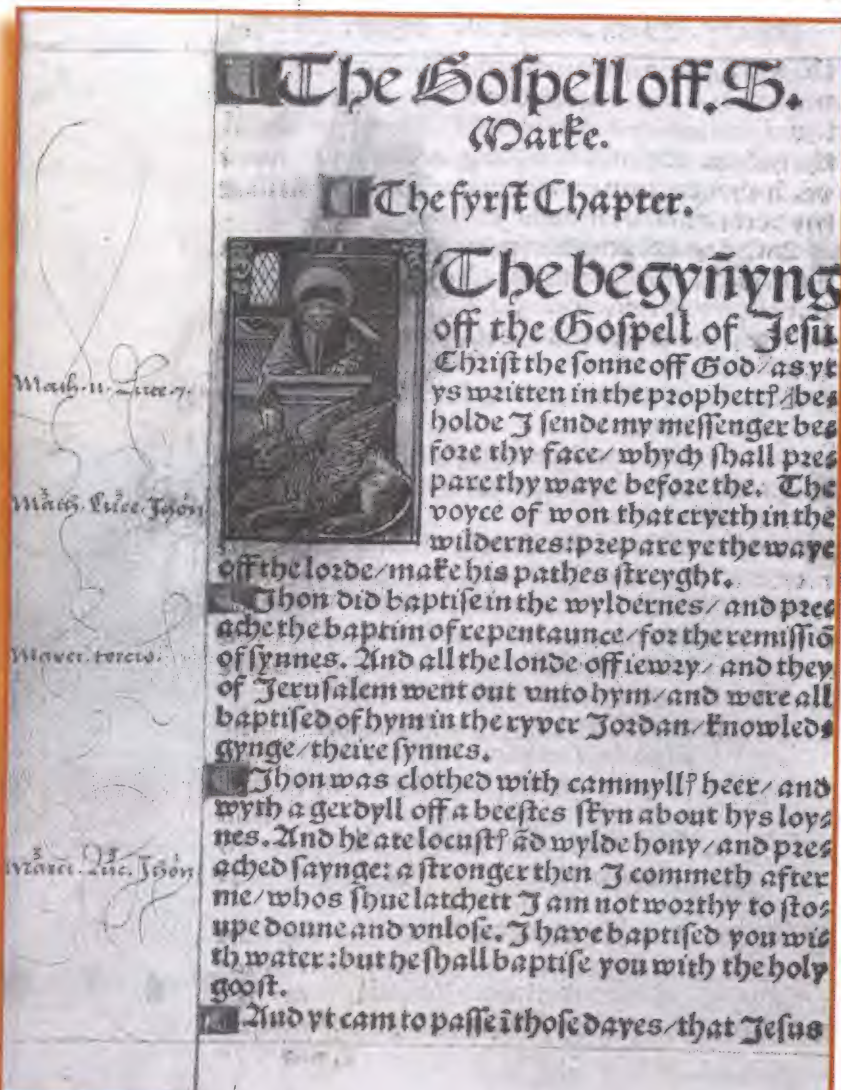 The Gospell off. S.
Marke.
The fyrst Chapter.
The begyñyng
off the Gospell of Jesu
Christ the sonne off God/as yt
ys written in the prophetꝭ/be⸗
holde I sende my messenger be⸗
fore thy face/whych shall pre⸗
pare thy waye before the. The
voyce of won that cryeth in the
wildernes:prepare ye the waye
off the lorde/make his pathes streyght.
Jhon did baptise in the wyldernes/and pre⸗
ache the baptim of repentaunce/for the remissiõ
of synnes. And all the londe off iewry/and they
of Jerusalem went out vnto hym/and were all
baptised of hym in the ryver Jordan/knowled⸗
gynge/theire synnes.
Jhon was clothed with cammyllꝭ heer/and
wyth a gerdyll off a beestes skyn about hys loy⸗
nes. And he ate locustꝭ ãd wylde hony/and pre⸗
ached saynge: a stronger then I commeth after
me/whos shue latchett I am not worthy to sto⸗
upe doune and vnlose. I have baptised you wi⸗
th water:but he shall baptise you with the holy
goost.
And yt cam to passe ĩ those dayes/that Jesus
Math. 11. Luce. 7.
Math. Luce. Jhon
Marci. Luc. Jhon